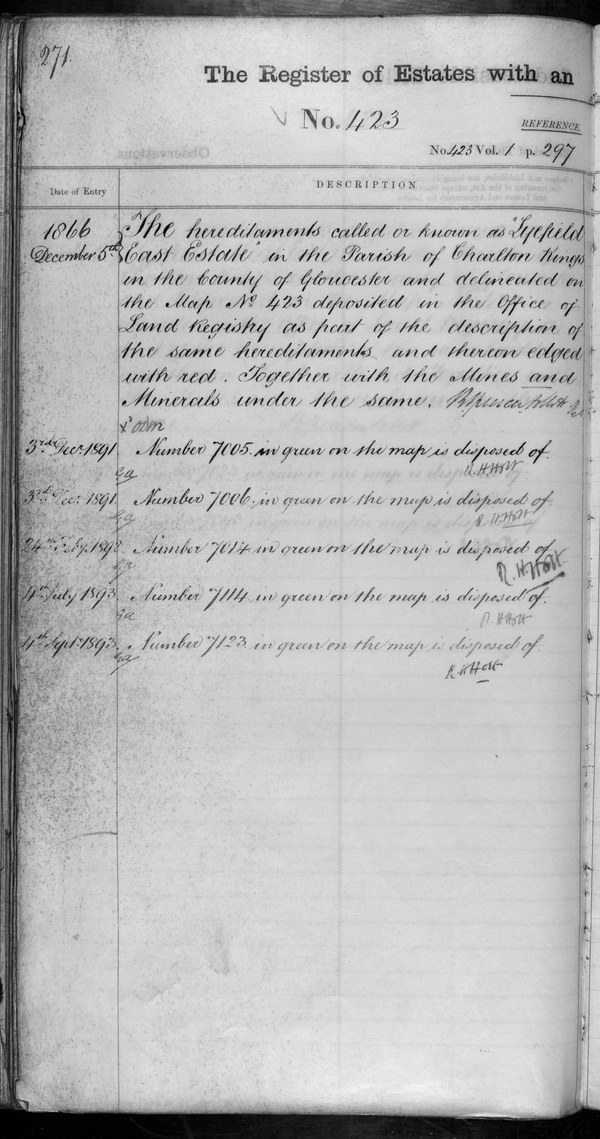 271
The Register of Estates with an
No. 423
REFERENCE.
No 423 Vol. 1 p. 297
Date of Entry
DESCRIPTION
1866
December 5th
The hereditaments called or known as "Lyefield
East Estate" in the Parish of Charlton Kings
in the County of Gloucester and delineated on
the Map No 423 deposited in the Office of
Land Registry as part of the description of
the same hereditaments and thereon edged
with red. Together with the Mines and
Minerals under the same.
3rd Decr. 1891 Number 7005. in green on the map is disposed of.
R H Holt
3rd Decr. 1891 Number 7006. in green on the map is disposed of.
R H Holt
24th Number 7014 in green on the map is disposed of
R. H. Holt
4th July 1893. Number 7114 in green on the map is disposed of.
R H Holt
4th Sept. 1893. Number 7123 in green on the map is disposed of.
R H Holt